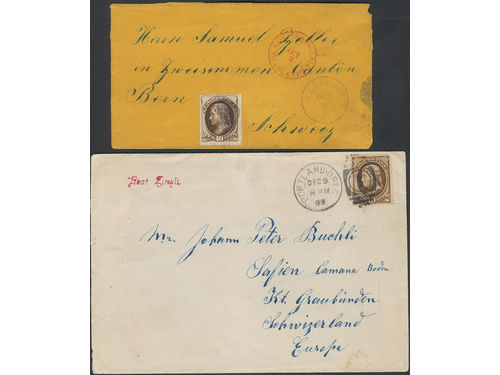 Herrn Samuel Zeller
in Zweisimmen Canton
Bern
Schweiz
OCT
10
Beat Zingli.
PORTLAND OREG.
DEC 9
8 PM
89
Mr. Johann Peter Buchli
Safien Camana Boden
Kt. Graubünden
Schwizerland
Europe